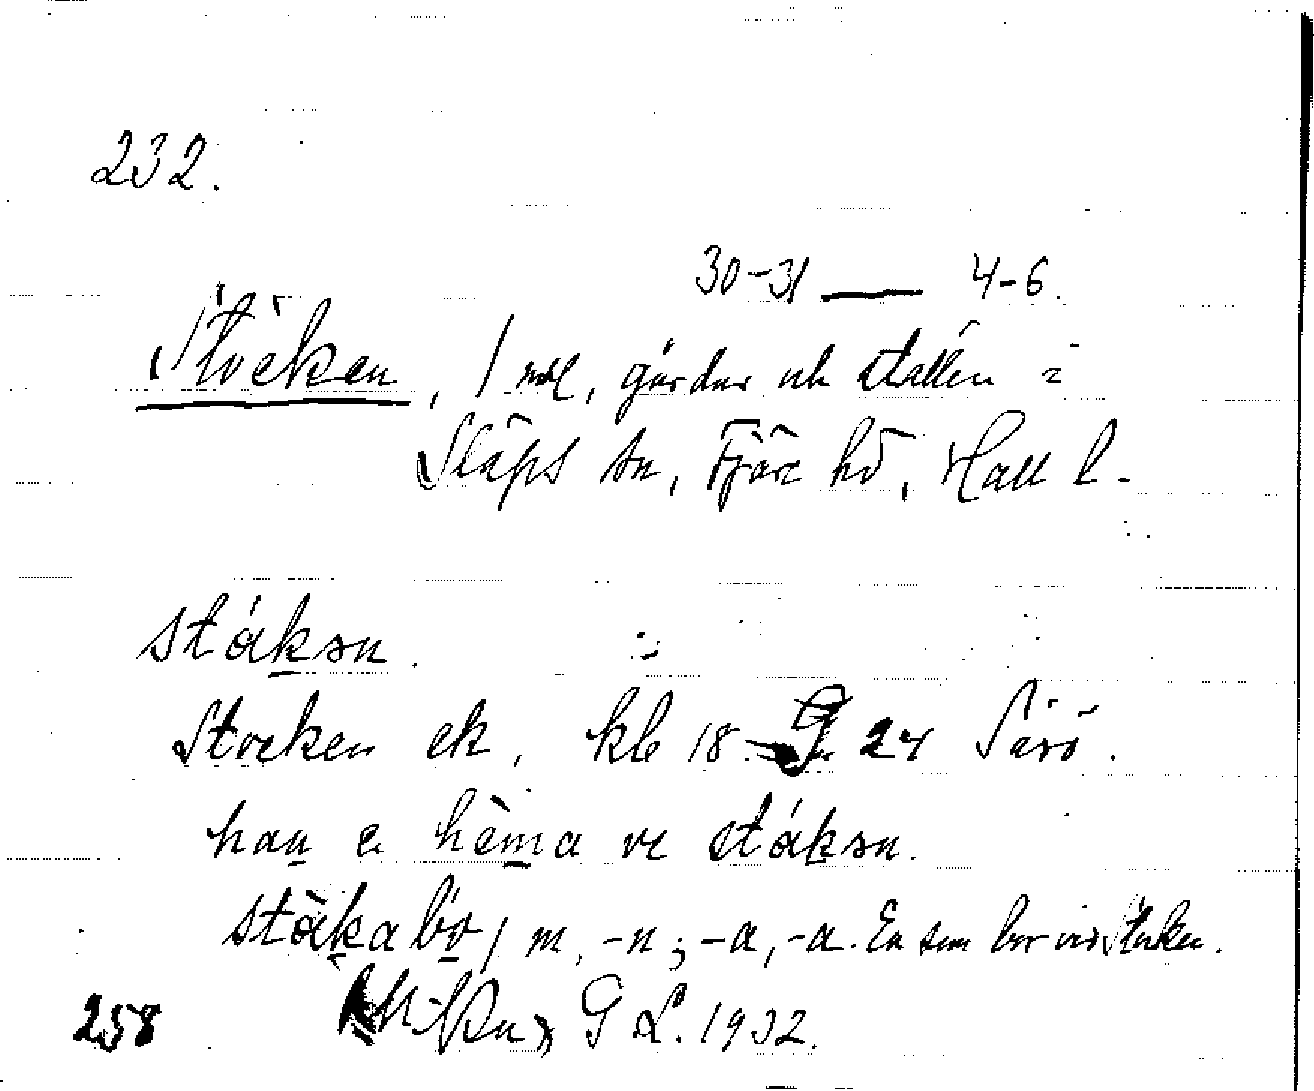 232.
30-31 — 4-6.
Stocken, 1 mtl, gårdar och ställen i
Släps sn, Fjäre hd, Hall l.
ståkən.
Stocken ek, kb 18 24 Särö.
han e hèma ve ståkən.
stàkabo, m, -n; -a, -a. En som bor vid Stocken.
G L. 1932.
258